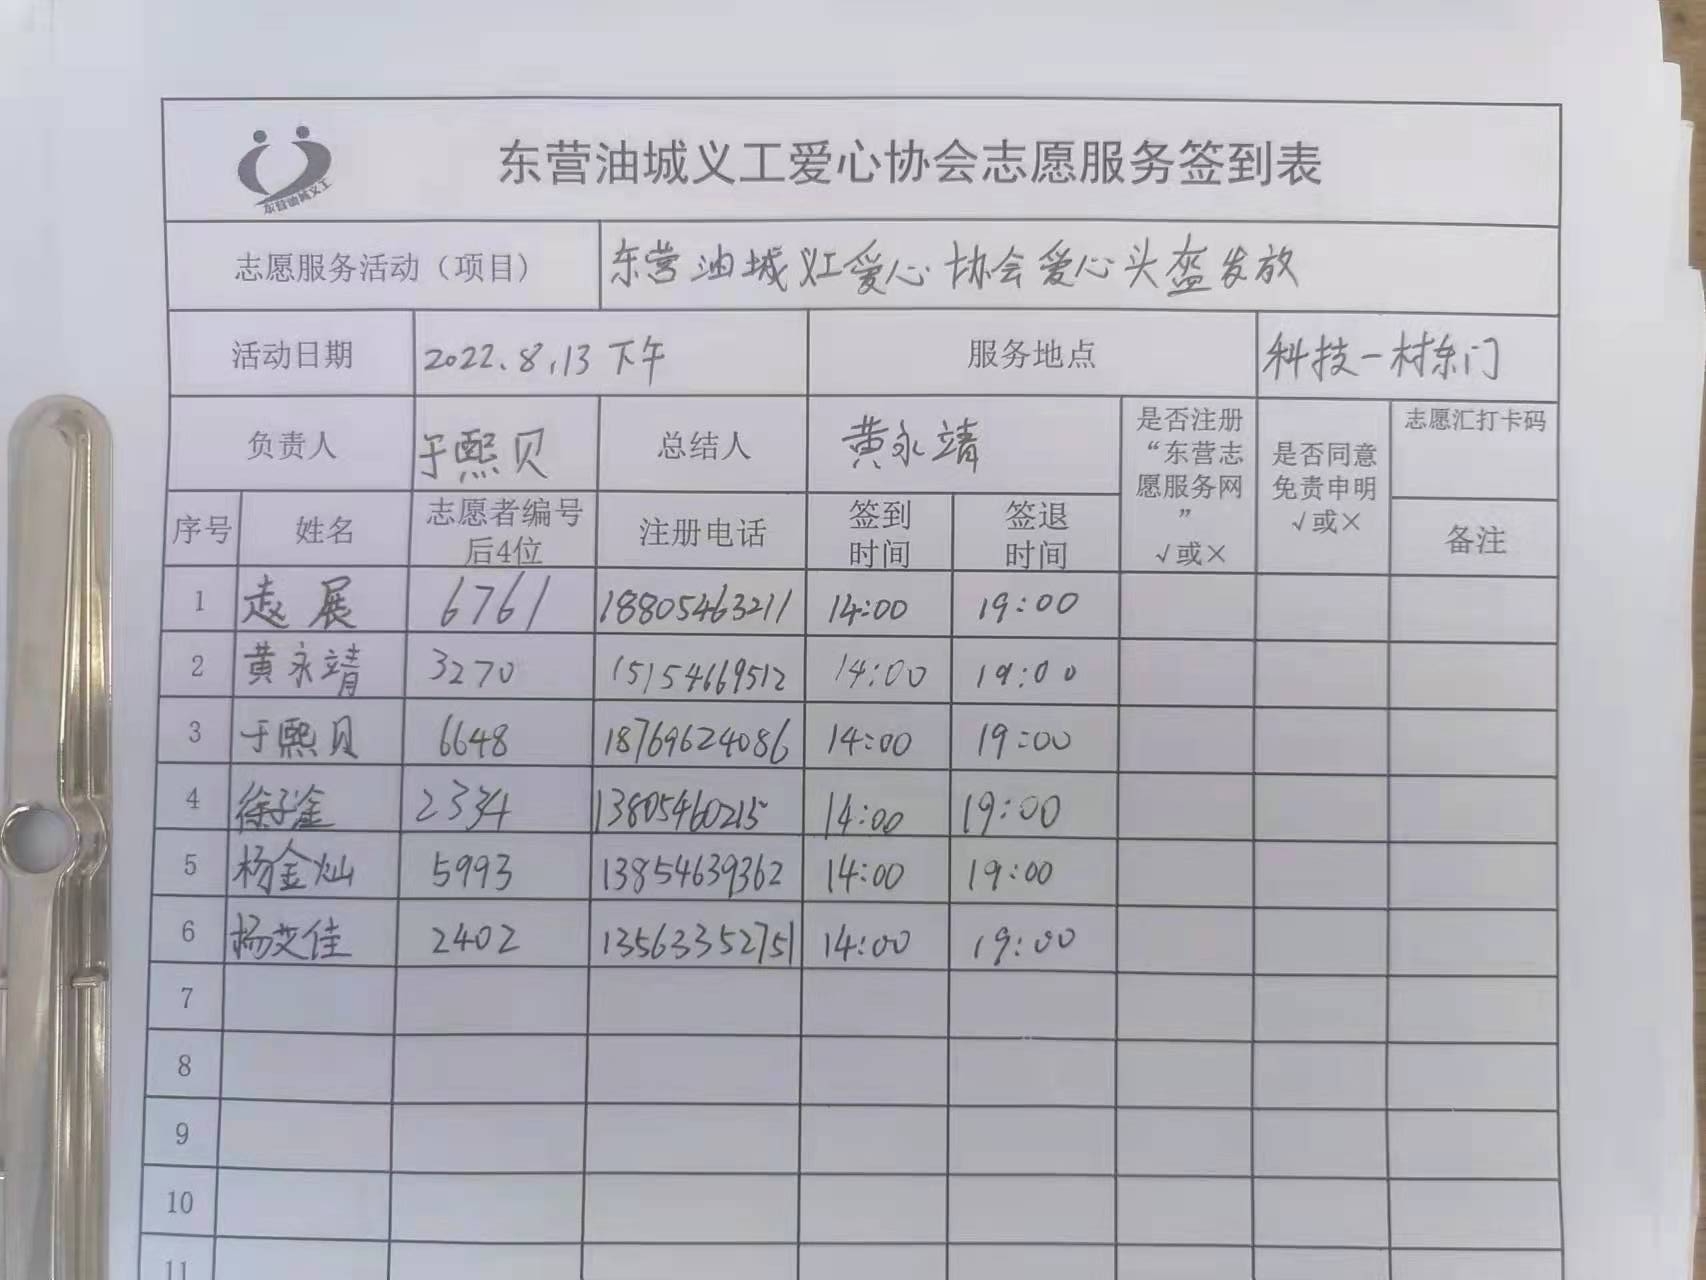 东营油城义工
东营油城义工爱心协会志愿服务签到表
志愿服务活动（项目） 东营油城义工爱心协会爱心头盔发放
活动日期 2022.8.13下午 服务地点 科技一村东门
负责人 于熙贝 总结人 黄永靖 是否注册“东营志愿服务网” √或× 是否同意免责申明 √或× 志愿汇打卡码
序号 姓名 志愿者编号后4位 注册电话 签到时间 签退时间 备注
1 赵展 6761 18805463211 14:00 19:00
2 黄永靖 3270 15154669512 14:00 19:00
3 于熙贝 6648 18769624086 14:00 19:00
4 徐子淦 2334 13805460215 14:00 19:00
5 杨金灿 5993 13854639362 14:00 19:00
6 杨艾佳 2402 13563352751 14:00 19:00
7
8
9
10
11